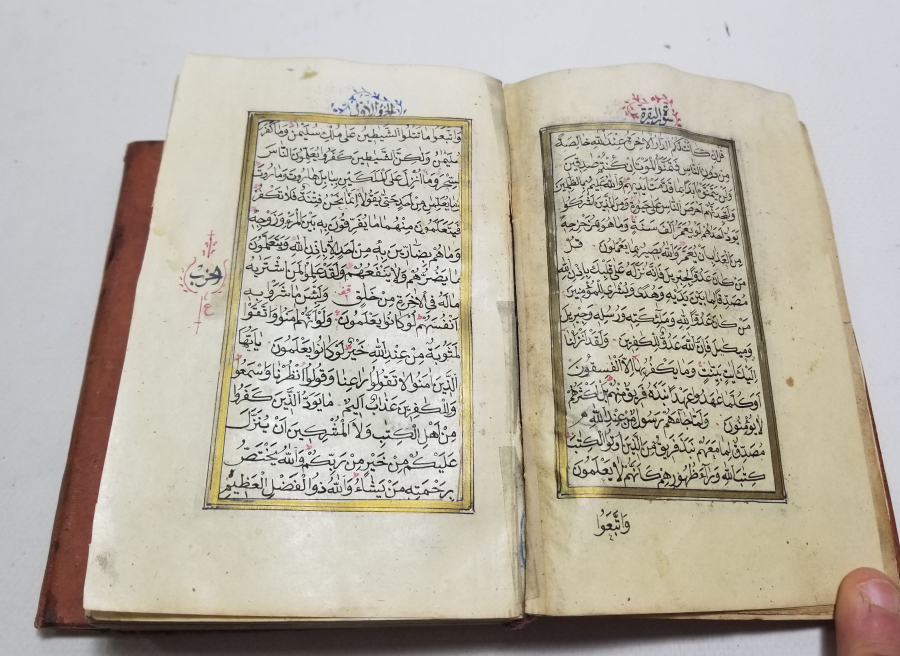 سورة البقرة
قل ان كانت لكم الدار الاخرة عند الله خالصة
من دون الناس فتمنوا الموت ان كنتم صدقين
ولن يتمنوه ابدا بما قدمت ايديهم والله عليم بالظلمين
ولتجدنهم احرص الناس على حيوة ومن الذين اشركوا
يود احدهم لو يعمر الف سنة وما هو بمزحزحه
من العذاب ان يعمر والله بصير بما يعملون قل
من كان عدوا لجبريل فانه نزله على قلبك باذن الله
مصدقا لما بين يديه وهدى وبشرى للمؤمنين
من كان عدوا لله وملئكته ورسله وجبريل
وميكيل فان الله عدو للكفرين ولقد انزلنا
اليك ايت بينت وما يكفر بها الا الفسقون
اوكلما عهدوا عهدا نبذه فريق منهم بل اكثرهم
لا يؤمنون ولما جاءهم رسول من عند الله
مصدق لما معهم نبذ فريق من الذين اوتوا الكتب
كتب الله وراء ظهورهم كانهم لا يعلمون
واتبعوا
الجزو الاول
واتبعوا ما تتلوا الشيطين على ملك سليمن وما كفر
سليمن ولكن الشيطين كفروا يعلمون الناس
السحر وما انزل على الملكين ببابل هاروت وماروت
وما يعلمن من احد حتى يقولا انما نحن فتنة فلا تكفر
فيتعلمون منهما ما يفرقون به بين المرء وزوجه
وما هم بضارين به من احد الا باذن الله ويتعلمون
ما يضرهم ولا ينفعهم ولقد علموا لمن اشتريه
ماله في الاخرة من خلق ولبئس ما شروا به
انفسهم لو كانوا يعلمون ولو انهم امنوا واتقوا
لمثوبة من عند الله خير لو كانوا يعلمون يايها
الذين امنوا لا تقولوا راعنا وقولوا انظرنا واسمعوا
وللكفرين عذاب اليم ما يود الذين كفروا
من اهل الكتب ولا المشركين ان ينزل
عليكم من خير من ربكم والله يختص
برحمته من يشاء والله ذو الفضل العظيم
الحزب